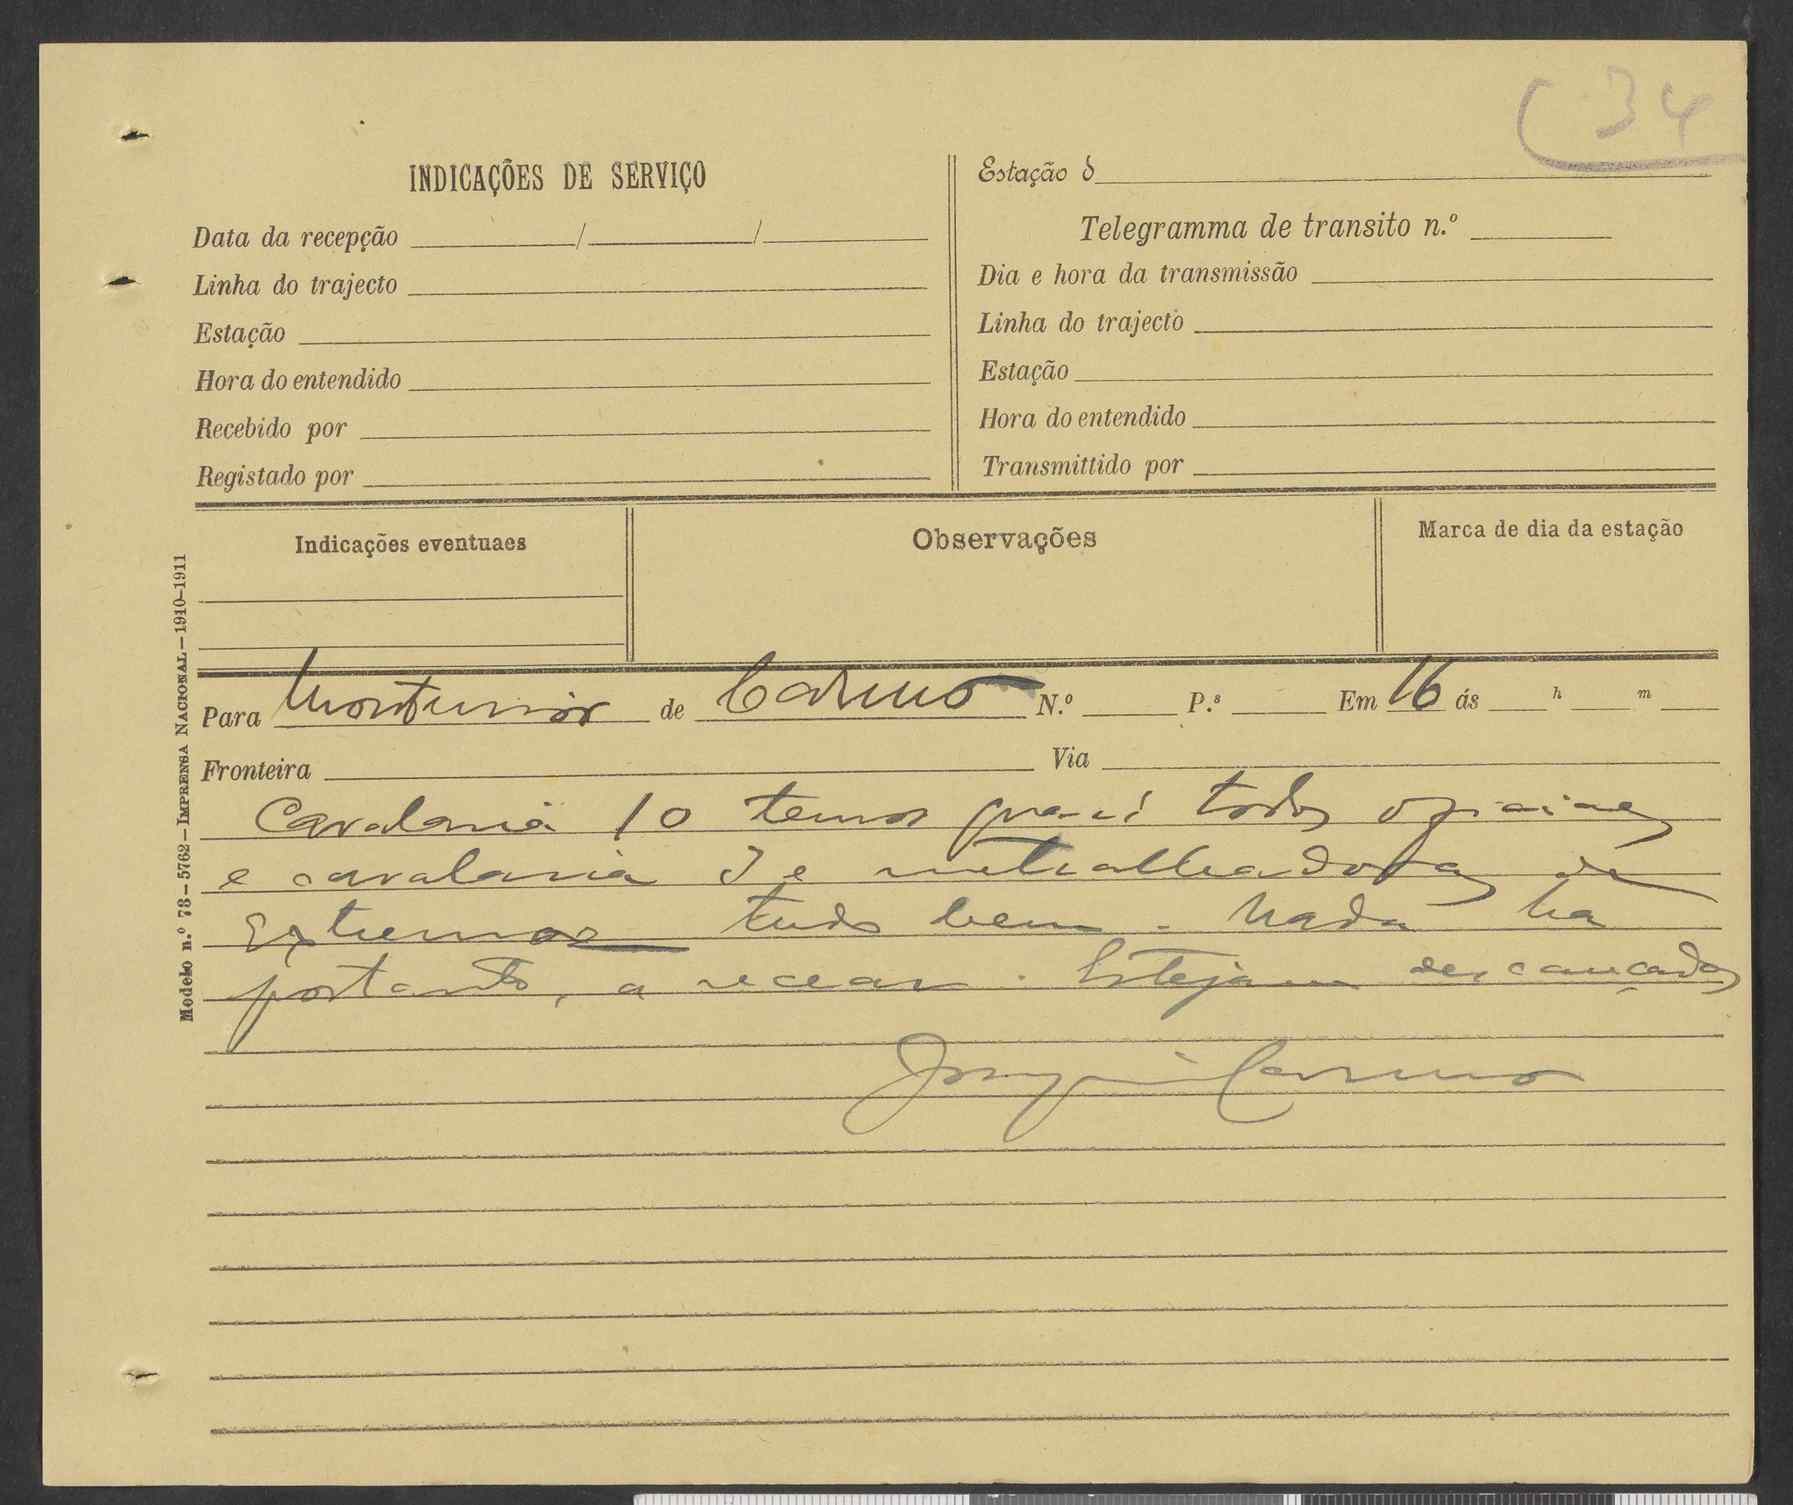 34
INDICAÇÕES DE SERVIÇO
Data da recepção / /
Linha do trajecto
Estação
Hora do entendido
Recebido por
Registado por
Estação d
Telegramma de transito n.º
Dia e hora da transmissão
Linha do trajecto
Estação
Hora do entendido
Transmittido por
Indicações eventuaes
Observações
Marca de dia da estação
Modelo n.º 73—5762—IMPRENSA NACIONAL—1910-1911
Para Montemór de Carmo N.º P.s Em 16 ás h m
Fronteira Via
Cavalaria 10 temos quasi todos oficiaes
e cavalaria 3 e metralhadoras de
Extremoz tudo bem. Nada ha
portanto, a recear. Estejam descançados
Joaquim Carmo